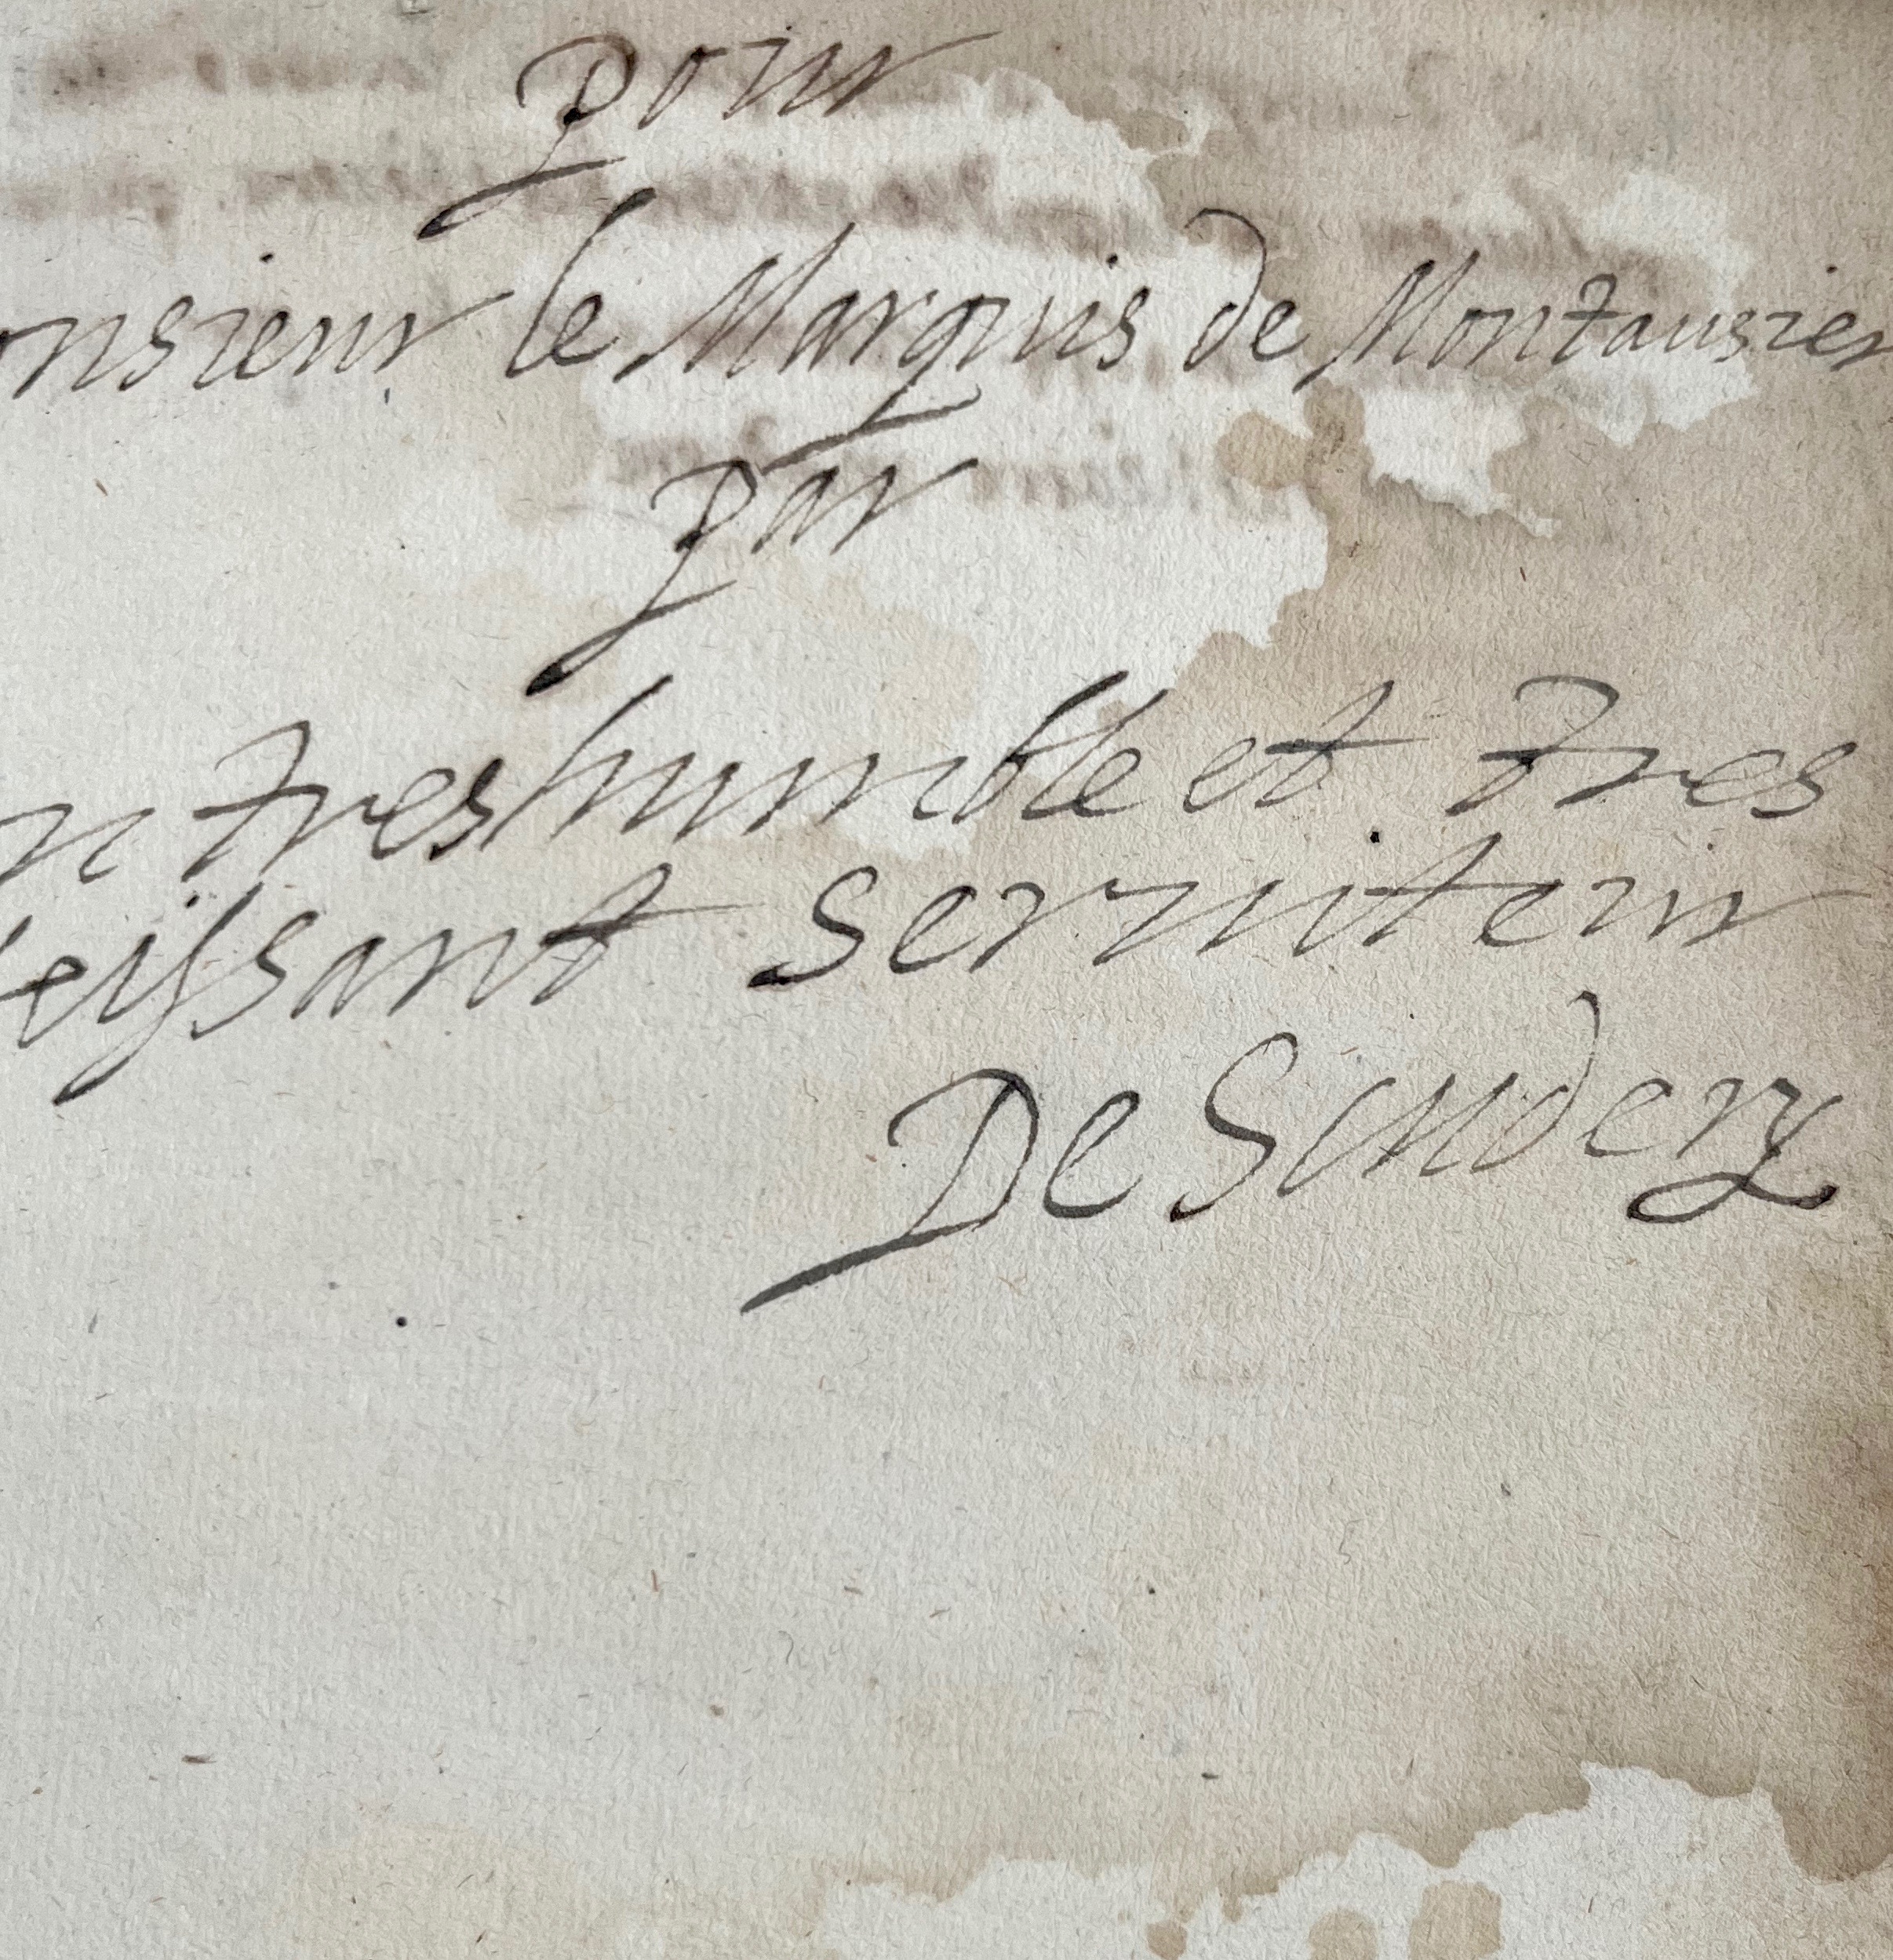 pour
onsieur le Marquis de Montausier
par
n tres humble et tres
eÿssant seruiteur
De Scudery